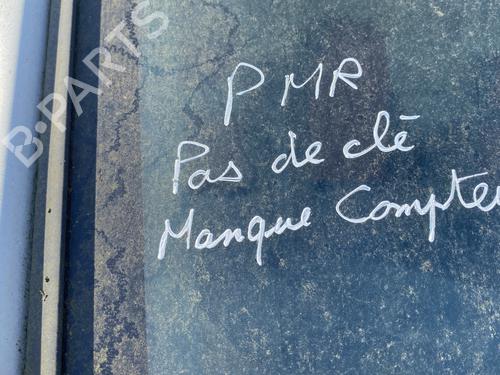 B-PARTS
PMR
Pas de clé
Manque Compteu